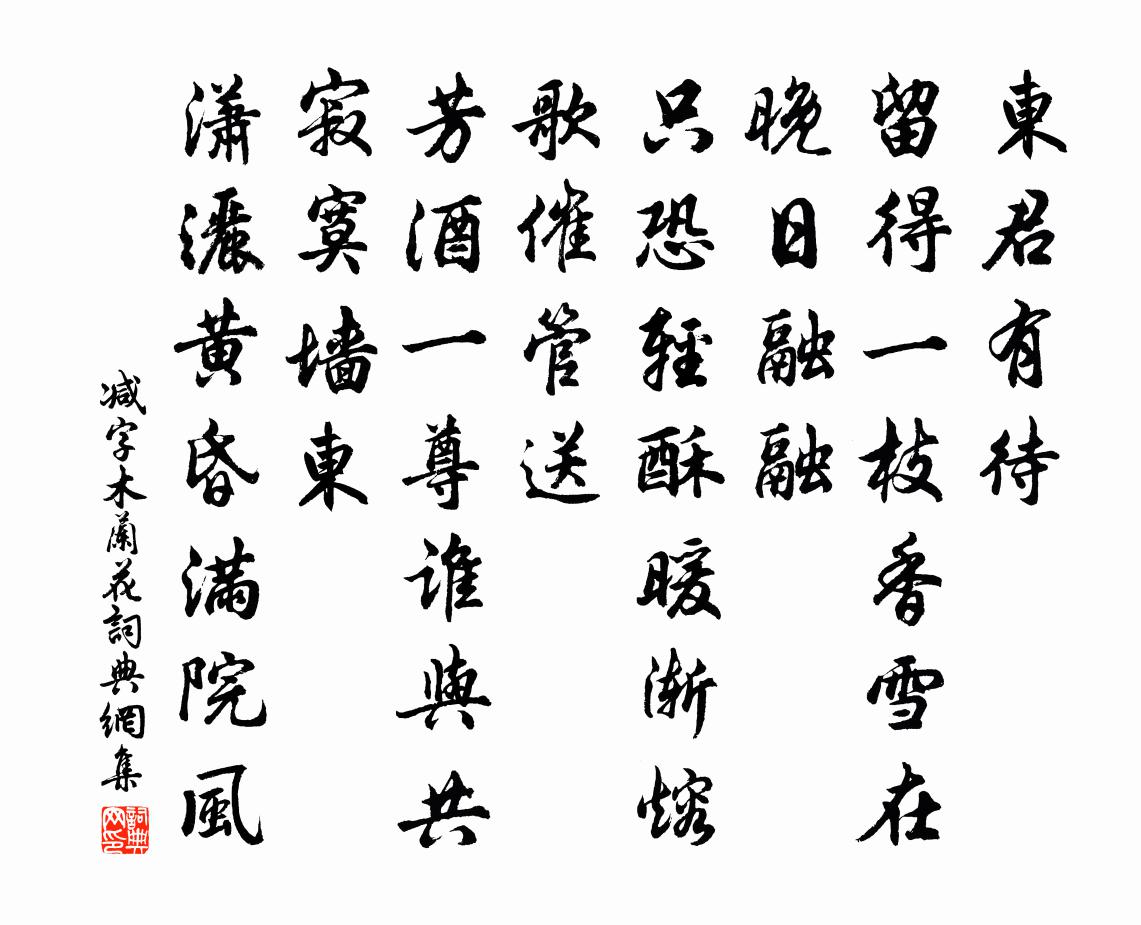 東君有待
留得一枝香雪在
晚日融融
只恐輕酥暖漸熔
歌催管送
芳酒一尊誰與共
寂寞墻東
瀟灑黃昏滿院風
減字木蘭花詞典網集
詞典网印